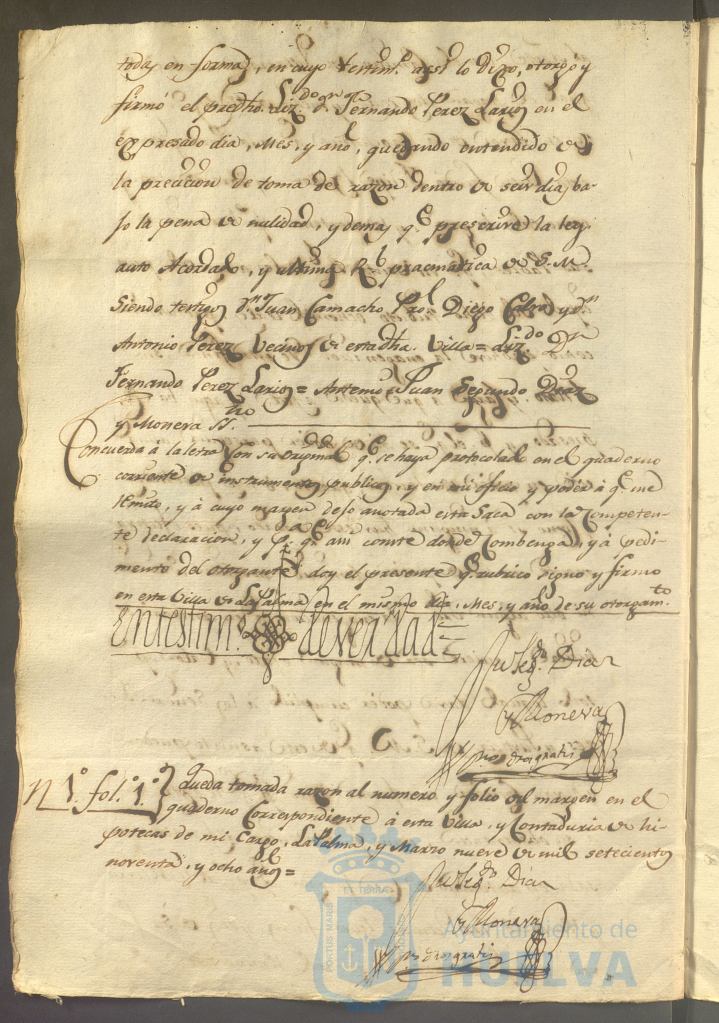 todas en forma, en cuyo testim.º assi lo dixo, otorgó y
firmó el predho. Liz.do D.n Fernando Perez Larios en el
expresado dia, Mes, y año, quedando entendido de
la precicion de toma de razon dentro de seis dias ba-
jo la pena de nulidad, y demas q.e prescrive la ley
auto Acordado, y ultima R.l pracmatica de S. M.
Siendo testigos D.n Juan Camacho Diego y D.n
Antonio Perez Vecinos de esta dha. Villa = Liz.do D.n
Fernando Perez Larios = Antemi Juan Segundo Diaz
y Moneva
Concuerda á la letra con su original q.e se haya protocolado en el quaderno
corriente de instrumentos publicos, y en mi oficio y poder á q.e me
remito, y á cuyo margen dejo anotada esta Saca con la Competen-
te declaracion, y p.a q.e assi conste donde Combenga, y á pedi-
mento del otorgante doy el presente q.e rubrico signo y firmo
en esta Villa de La Palma en el mismo dia, Mes, y año de su otorgam.to
En testim.º de verdad
Ju. Seg.do Diaz
y Moneva
N 1.º fol.º 1.º Queda tomada razon al numero y folio del margen en el
quaderno Correspondiente á esta Villa, y Contaduria de hi-
potecas de mi Cargo. La Palma, y Marzo nueve de mil setecientos
noventa, y ocho años =
Ju. Seg.do Diaz
y Moneva
PORTUS MARIS
ET TERRAE
Ayuntamiento de
HUELVA